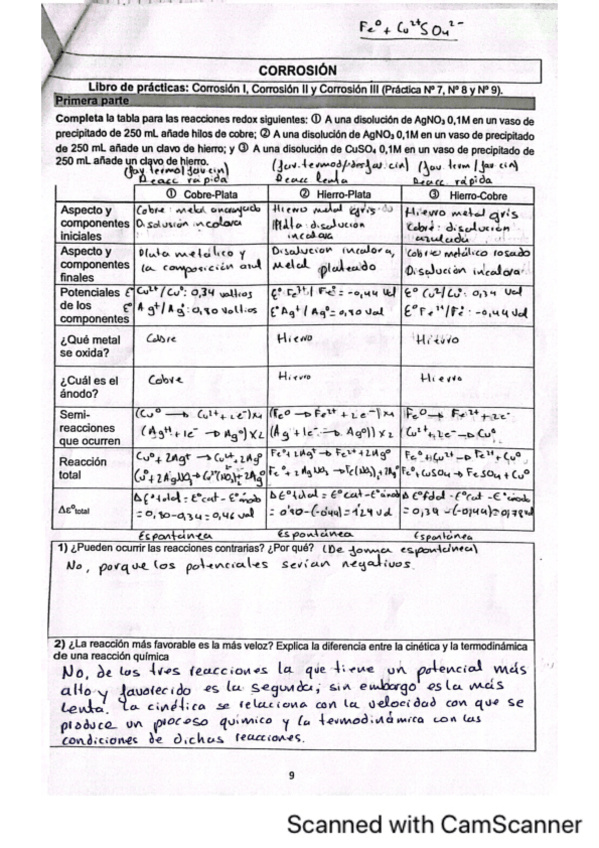 Fe⁰ + Cu²⁺SO₄²⁻
CORROSIÓN
Libro de prácticas: Corrosión I, Corrosión II y Corrosión III (Práctica Nº 7, Nº 8 y Nº 9).
Primera parte
Completa la tabla para las reacciones redox siguientes: ① A una disolución de AgNO₃ 0,1M en un vaso de
precipitado de 250 mL añade hilos de cobre; ② A una disolución de AgNO₃ 0,1M en un vaso de precipitado
de 250 mL añade un clavo de hierro; y ③ A una disolución de CuSO₄ 0,1M en un vaso de precipitado de
250 mL añade un clavo de hierro.
(fav termo/fav cin) (fav. termod/desfav. cin) (fav. term / fav cin)
Reacc rápida Reacc lenta Reacc. rápida
① Cobre-Plata ② Hierro-Plata ③ Hierro-Cobre
Aspecto y componentes iniciales
Cobre: metal anaranjado
Disolución incolora
Hierro metal gris
Plata: disolución
incolora
Hierro metal gris
Cobre: disolución
azulada
Aspecto y componentes finales
Plata metálico y
la composición azul
Disolución incolora,
Metal plateado
Cobre metálico rosado
Disolución incolora
Potenciales de los componentes
ε⁰ Cu²⁺/Cu⁰: 0,34 voltios
ε⁰ Ag⁺/Ag⁰: 0,80 voltios
ε⁰ Fe²⁺/Fe⁰ = -0,44 vol
ε⁰ Ag⁺/Ag⁰ = 0,80 vol
ε⁰ Cu²⁺/Cu⁰: 0,34 vol
ε⁰ Fe²⁺/Fe⁰: -0,44 vol
¿Qué metal se oxida? Cobre Hierro Hierro
¿Cuál es el ánodo? Cobre Hierro Hierro
Semi-reacciones que ocurren
(Cu⁰ → Cu²⁺ + 2e⁻)x1
(Ag⁺ + 1e⁻ → Ag⁰)x2
(Fe⁰ → Fe²⁺ + 2e⁻)x1
(Ag + 1e⁻ → Ag⁰)x2
Fe⁰ → Fe²⁺ + 2e⁻
Cu²⁺ + 2e⁻ → Cu⁰
Reacción total
Cu⁰ + 2Ag⁺ → Cu²⁺ + 2Ag⁰
Cu⁰ + 2AgNO₃ → Cu(NO₃)₂ + 2Ag⁰
Fe⁰ + 2Ag⁺ → Fe²⁺ + 2Ag⁰
Fe⁰ + 2AgNO₃ → Fe(NO₃)₂ + 2Ag⁰
Fe⁰ + Cu²⁺ → Fe²⁺ + Cu⁰
Fe⁰ + CuSO₄ → FeSO₄ + Cu⁰
Δε⁰total
Δε⁰total = ε⁰cat - ε⁰ánodo
= 0,80 - 0,34 = 0,46 vol
Δε⁰total = ε⁰cat - ε⁰ánodo
= 0'80 - (-0'44) = 1'24 vol
Δε⁰total - ε⁰cat - ε⁰ánodo
= 0,34 - (-0,44) = 0,78 vol
Espontánea Espontánea Espontánea
1) ¿Pueden ocurrir las reacciones contrarias? ¿Por qué? (De forma espontánea)
No, porque los potenciales serían negativos.
2) ¿La reacción más favorable es la más veloz? Explica la diferencia entre la cinética y la termodinámica
de una reacción química
No, de las tres reacciones la que tiene un potencial más
alto y favorecido es la segunda; sin embargo es la más
lenta. La cinética se relaciona con la velocidad con que se
produce un proceso químico y la termodinámica con las
condiciones de dichas reacciones.
9
Scanned with CamScanner